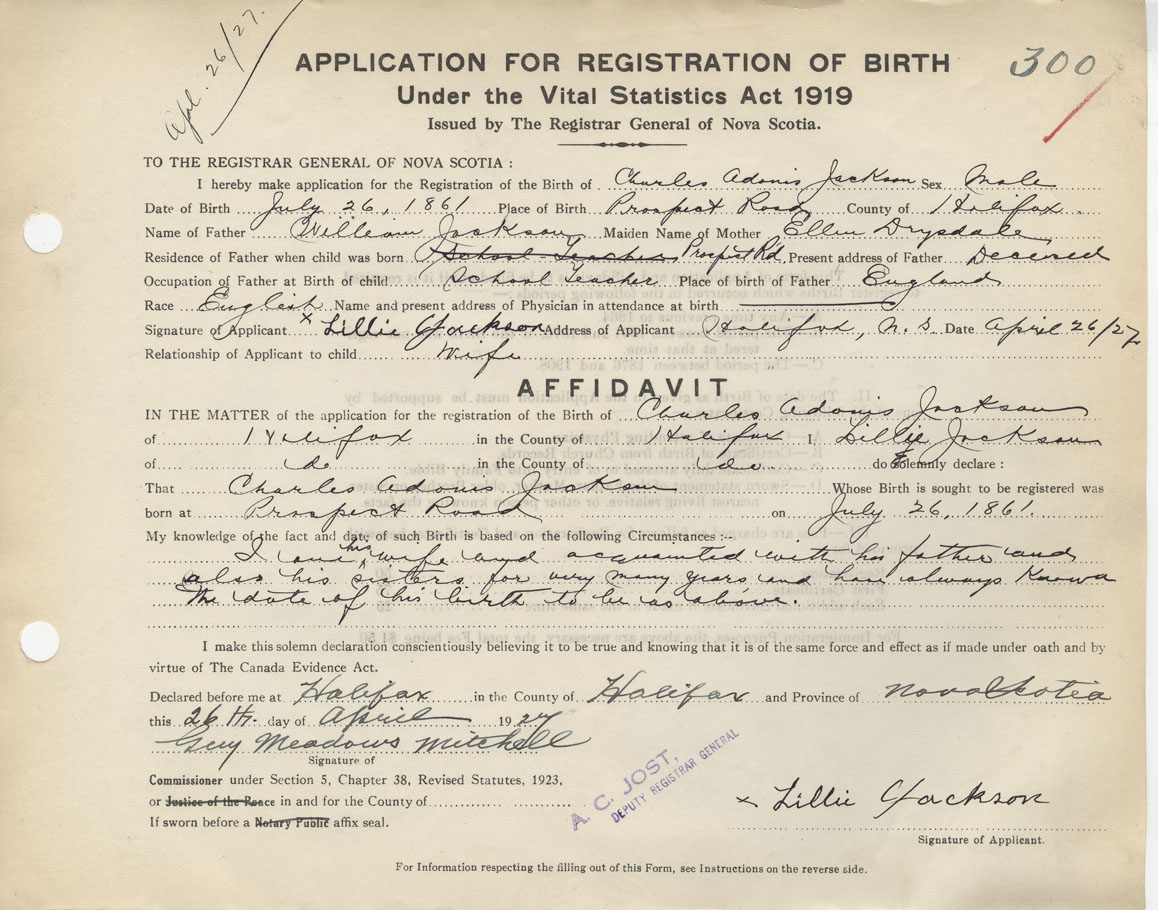 Apl. 26/27.
300
APPLICATION FOR REGISTRATION OF BIRTH
Under the Vital Statistics Act 1919
Issued by The Registrar General of Nova Scotia.
TO THE REGISTRAR GENERAL OF NOVA SCOTIA :
I hereby make application for the Registration of the Birth of Charles Adonis Jackson Sex Male
Date of Birth July 26, 1861 Place of Birth Prospect Road County of Halifax
Name of Father William Jackson Maiden Name of Mother Ellen Drysdale
Residence of Father when child was born School Teacher Prospect Rd. Present address of Father Deceased
Occupation of Father at Birth of child School Teacher Place of birth of Father England
Race English Name and present address of Physician in attendance at birth
Signature of Applicant x Lillie Jackson Address of Applicant Halifax, N. S. Date April 26/27
Relationship of Applicant to child Wife
AFFIDAVIT
IN THE MATTER of the application for the registration of the Birth of Charles Adonis Jackson
of Halifax in the County of Halifax I, Lillie Jackson
of do in the County of do do Solemnly declare :
That Charles Adonis Jackson Whose Birth is sought to be registered was
born at Prospect Road on July 26, 1861
My knowledge of the fact and date of such Birth is based on the following Circumstances :--
I am his wife and acquainted with his father and
also his sisters for very many years and have always known
the date of his birth to be as above.
I make this solemn declaration conscientiously believing it to be true and knowing that it is of the same force and effect as if made under oath and by
virtue of The Canada Evidence Act.
Declared before me at Halifax in the County of Halifax and Province of Nova Scotia
this 26th. day of April 1927
Guy Meadows Mitchell
Signature of
Commissioner under Section 5, Chapter 38, Revised Statutes, 1923,
or Justice of the Peace in and for the County of
If sworn before a Notary Public affix seal.
A. C. JOST,
DEPUTY REGISTRAR GENERAL
x Lillie Jackson
Signature of Applicant.
For Information respecting the filling out of this Form, see Instructions on the reverse side.